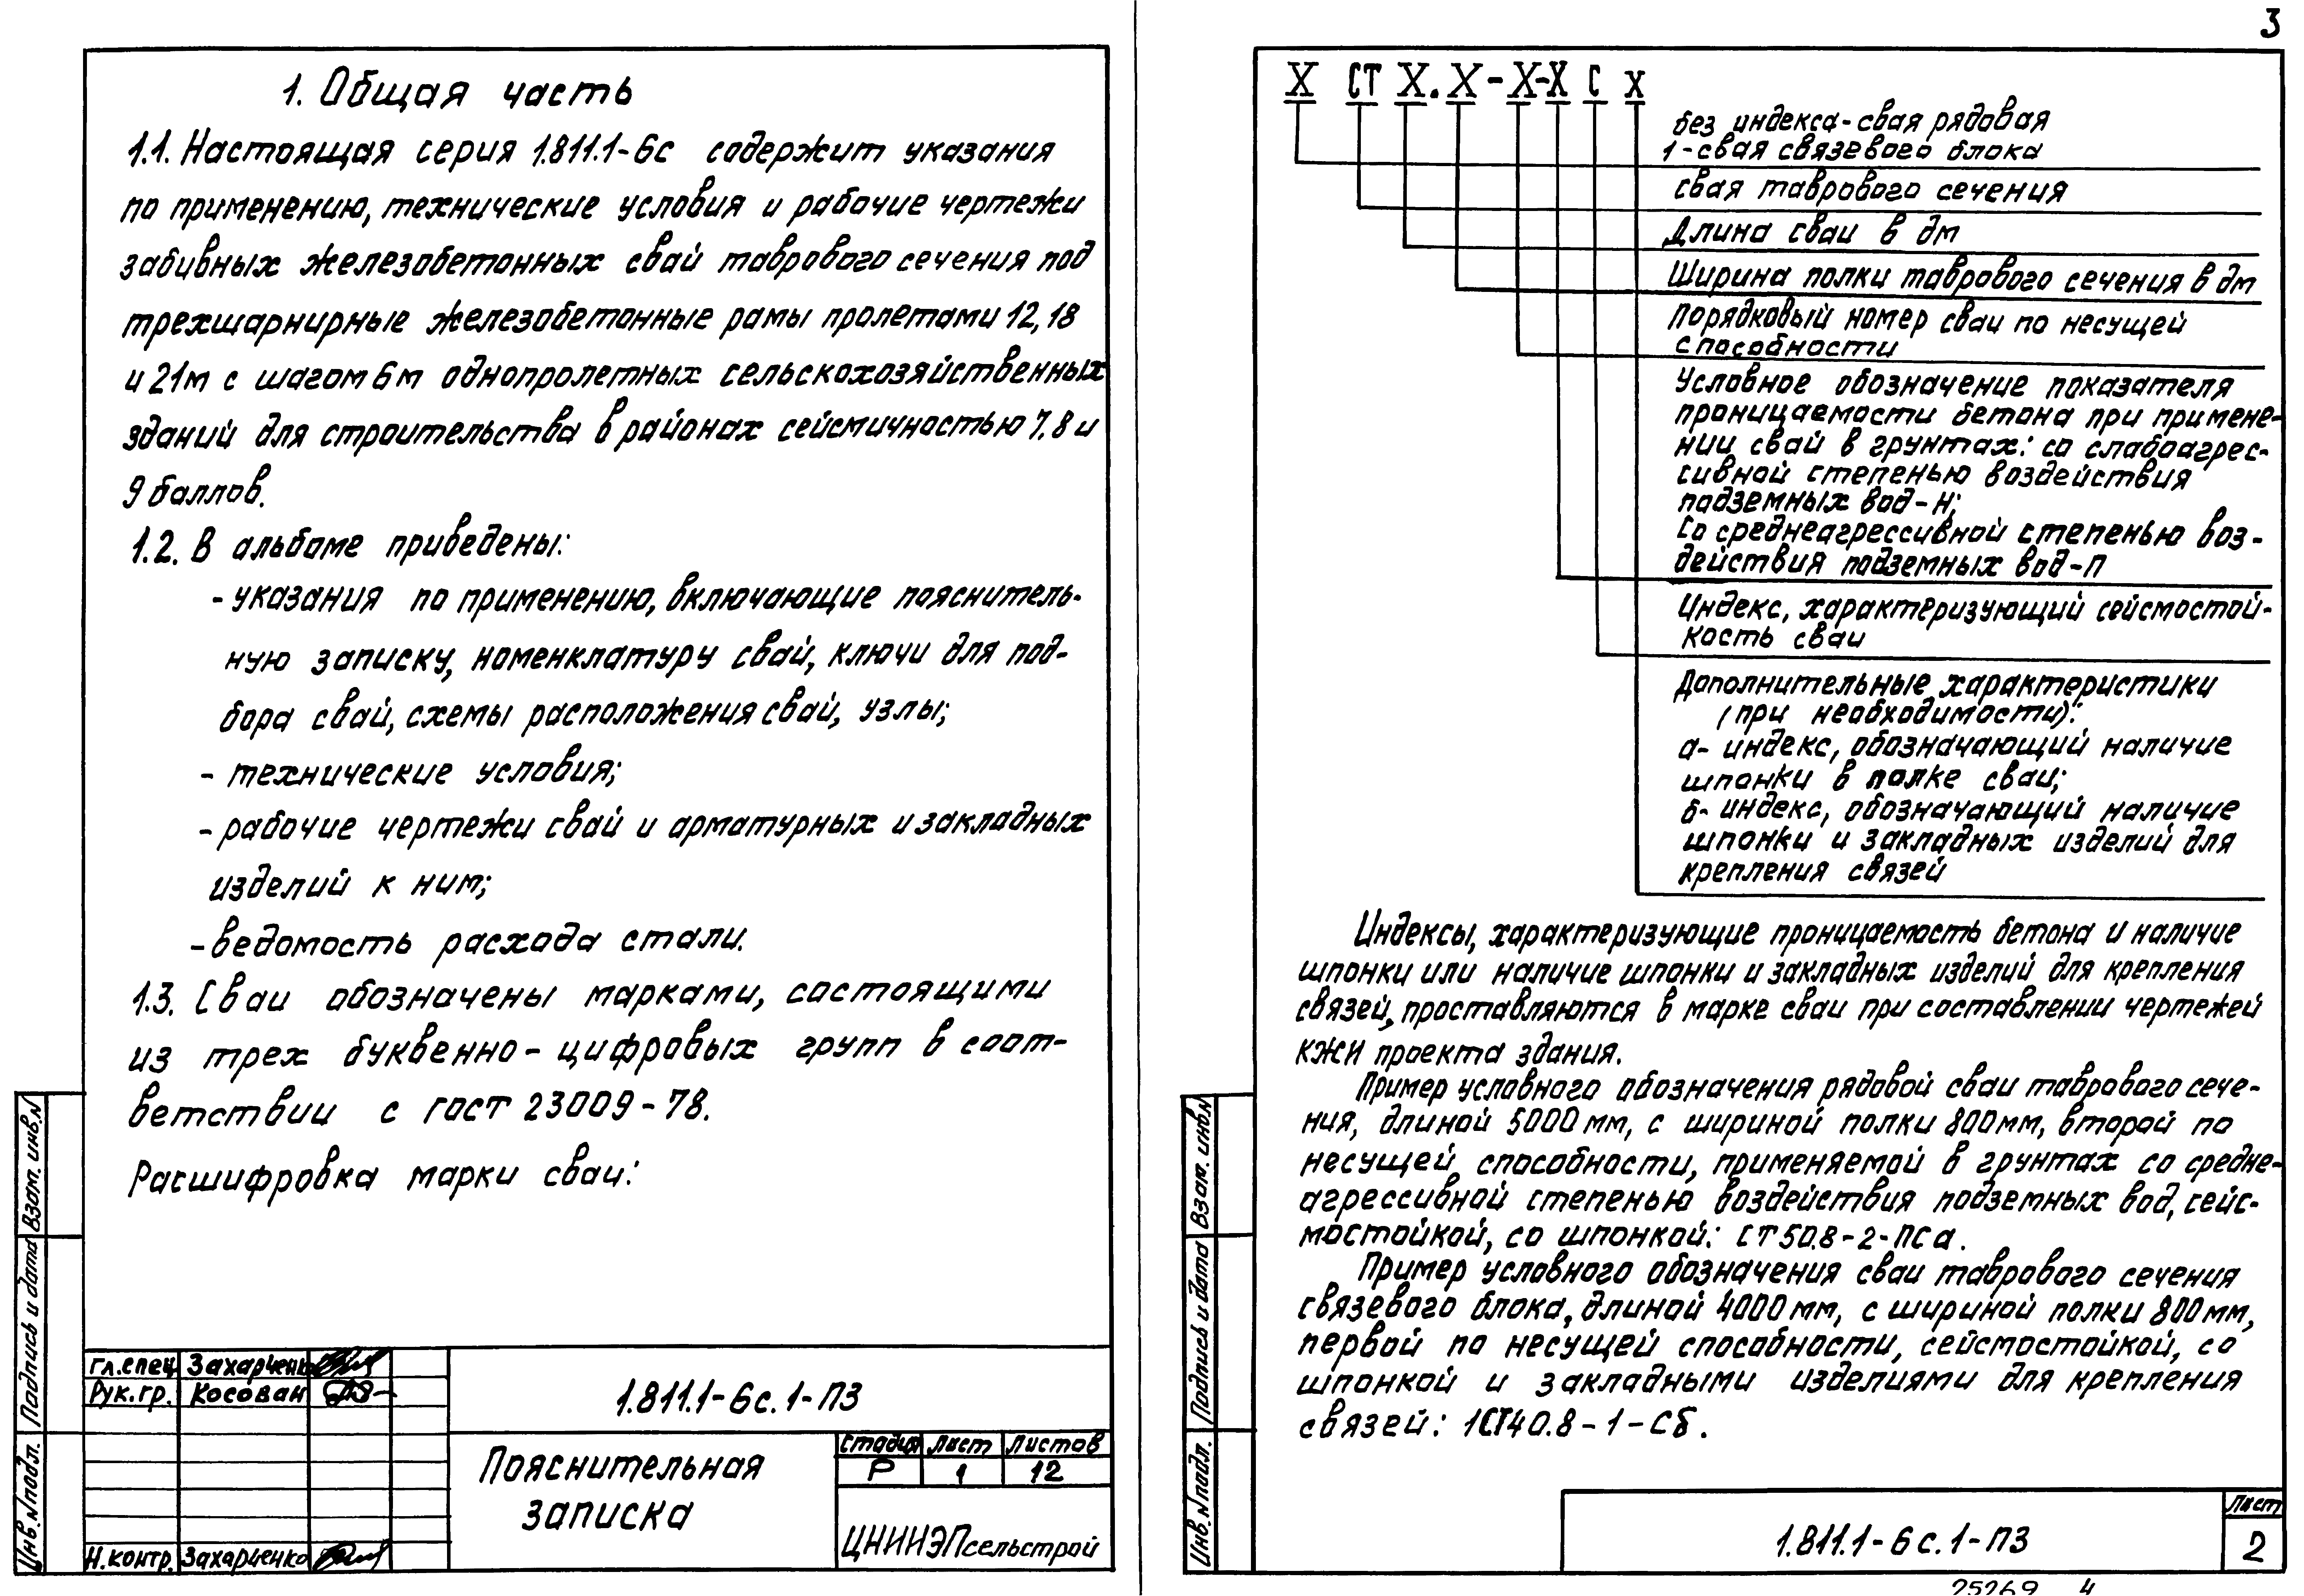 1. Общая часть
1.1. Настоящая серия 1.811.1-6с содержит указания
по применению, технические условия и рабочие чертежи
забивных железобетонных свай таврового сечения под
трехшарнирные железобетонные рамы пролетами 12, 18
и 21м с шагом 6м однопролетных сельскохозяйственных
зданий для строительства в районах сейсмичностью 7, 8 и
9 баллов.
1.2. В альбоме приведены:
- указания по применению, включающие пояснитель-
ную записку, номенклатуру свай, ключи для под-
бора свай, схемы расположения свай, узлы;
- технические условия;
- рабочие чертежи свай и арматурных и закладных
изделий к ним;
- ведомость расхода стали.
1.3. Сваи обозначены марками, состоящими
из трех буквенно-цифровых групп в соот-
ветствии с гост 23009-78.
Расшифровка марки сваи:
Взам. инв. N
Подпись и дата
Инв. N подл.
Гл.спец Захарчень
Рук. гр. Косован
Н.контр. Захарченко
1.811.1-6с.1-ПЗ
Пояснительная
записка
Стадия Лист Листов
Р 1 12
ЦНИИЭПсельстрой
3
Х СТ Х.Х-Х-Х С х
без индекса - свая рядовая
1 - свая связевого блока
свая таврового сечения
Длина сваи в дм
Ширина полки таврового сечения в дм
Порядковый номер сваи по несущей
способности
Условное обозначение показателя
проницаемости бетона при примене-
нии свай в грунтах: со слабоагрес-
сивной степенью воздействия
подземных вод - Н;
Со среднеагрессивной степенью воз-
действия подземных вод - П
Индекс, характеризующий сейсмостой-
кость сваи
Дополнительные характеристики
(при необходимости):
а- индекс, обозначающий наличие
шпонки в полке сваи;
б- индекс, обозначающий наличие
шпонки и закладных изделий для
крепления связей
Индексы, характеризующие проницаемость бетона и наличие
шпонки или наличие шпонки и закладных изделий для крепления
связей, проставляются в марке сваи при составлении чертежей
КЖИ проекта здания.
Пример условного обозначения рядовой сваи таврового сече-
ния, длиной 5000 мм, с шириной полки 800 мм, второй по
несущей способности, применяемой в грунтах со средне-
агрессивной степенью воздействия подземных вод, сейс-
мостойкой, со шпонкой: СТ50.8-2-ПСа.
Пример условного обозначения сваи таврового сечения
связевого блока, длиной 4000 мм, с шириной полки 800 мм,
первой по несущей способности, сейсмостойкой, со
шпонкой и закладными изделиями для крепления
связей: 1СТ40.8-1-Сб.
Взам. инв. N
Подпись и дата
Инв. N подл.
1.811.1-6с.1-ПЗ
Лист
2
25269 4